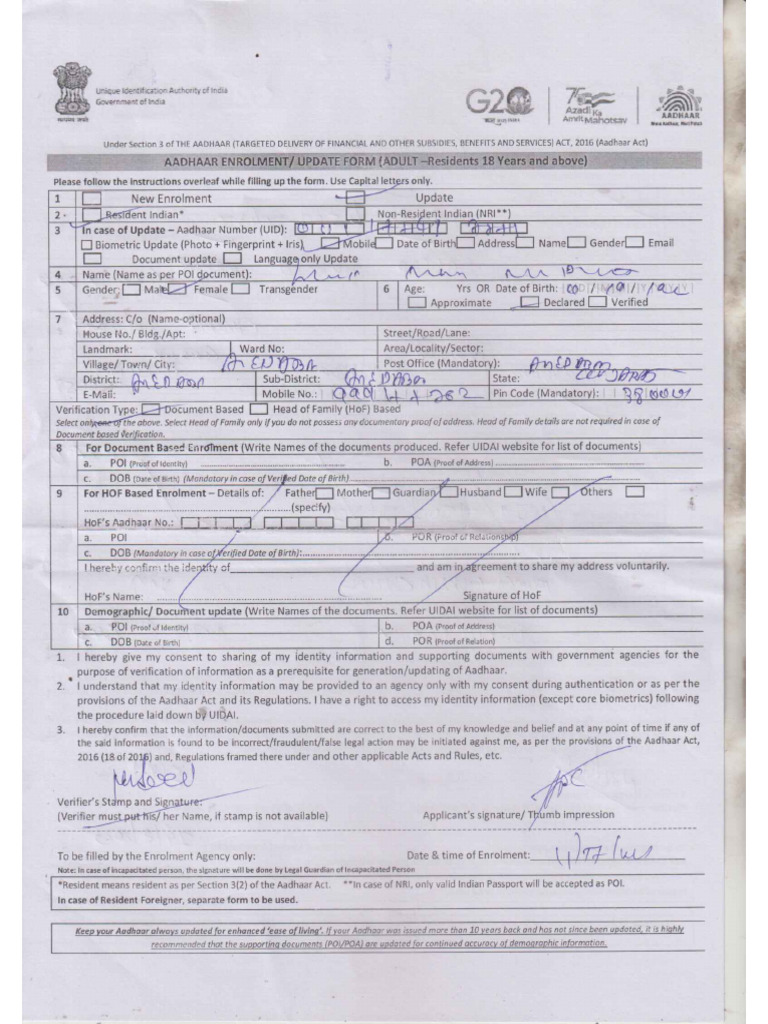 Unique Identification Authority of India
Government of India
G20
Azadi Ka Amrit Mahotsav
AADHAAR
Under Section 3 of THE AADHAAR (TARGETED DELIVERY OF FINANCIAL AND OTHER SUBSIDIES, BENEFITS AND SERVICES) ACT, 2016 (Aadhaar Act)
AADHAAR ENROLMENT/ UPDATE FORM (ADULT –Residents 18 Years and above)
Please follow the instructions overleaf while filling up the form. Use Capital letters only.
1 New Enrolment Update
2 Resident Indian* Non-Resident Indian (NRI**)
3 In case of Update – Aadhaar Number (UID):
Biometric Update (Photo + Fingerprint + Iris) Mobile Date of Birth Address Name Gender Email
Document update Language only Update
4 Name (Name as per POI document):
5 Gender: Male Female Transgender 6 Age: Yrs OR Date of Birth:
Approximate Declared Verified
7 Address: C/o (Name-optional)
House No./ Bldg./Apt: Street/Road/Lane:
Landmark: Ward No: Area/Locality/Sector:
Village/ Town/ City: Post Office (Mandatory):
District: Sub-District: State:
E-Mail: Mobile No.: Pin Code (Mandatory):
Verification Type: Document Based Head of Family (HoF) Based
Select only one of the above. Select Head of Family only if you do not possess any documentary proof of address. Head of Family details are not required in case of
Document based Verification.
8 For Document Based Enrolment (Write Names of the documents produced. Refer UIDAI website for list of documents)
a. POI (Proof of Identity) b. POA (Proof of Address)
c. DOB (Date of Birth) (Mandatory in case of Verified Date of Birth)
9 For HOF Based Enrolment – Details of: Father Mother Guardian Husband Wife Others
(specify)
HoF's Aadhaar No.:
a. POI b. POR (Proof of Relationship)
c. DOB (Mandatory in case of Verified Date of Birth):
I hereby confirm the identity of and am in agreement to share my address voluntarily.
HoF's Name: Signature of HoF
10 Demographic/ Document update (Write Names of the documents. Refer UIDAI website for list of documents)
a. POI (Proof of Identity) b. POA (Proof of Address)
c. DOB (Date of Birth) d. POR (Proof of Relation)
1. I hereby give my consent to sharing of my identity information and supporting documents with government agencies for the
purpose of verification of information as a prerequisite for generation/updating of Aadhaar.
2. I understand that my identity information may be provided to an agency only with my consent during authentication or as per the
provisions of the Aadhaar Act and its Regulations. I have a right to access my identity information (except core biometrics) following
the procedure laid down by UIDAI.
3. I hereby confirm that the information/documents submitted are correct to the best of my knowledge and belief and at any point of time if any of
the said information is found to be incorrect/fraudulent/false legal action may be initiated against me, as per the provisions of the Aadhaar Act,
2016 (18 of 2016) and, Regulations framed there under and other applicable Acts and Rules, etc.
Verifier's Stamp and Signature:
(Verifier must put his/ her Name, if stamp is not available) Applicant's signature/ Thumb Impression
To be filled by the Enrolment Agency only: Date & time of Enrolment:
Note: In case of incapacitated person, the signature will be done by Legal Guardian of Incapacitated Person
*Resident means resident as per Section 3(2) of the Aadhaar Act. **In case of NRI, only valid Indian Passport will be accepted as POI.
In case of Resident Foreigner, separate form to be used.
Keep your Aadhaar always updated for enhanced 'ease of living'. If your Aadhaar was issued more than 10 years back and has not since been updated, it is highly
recommended that the supporting documents (POI/POA) are updated for continued accuracy of demographic information.